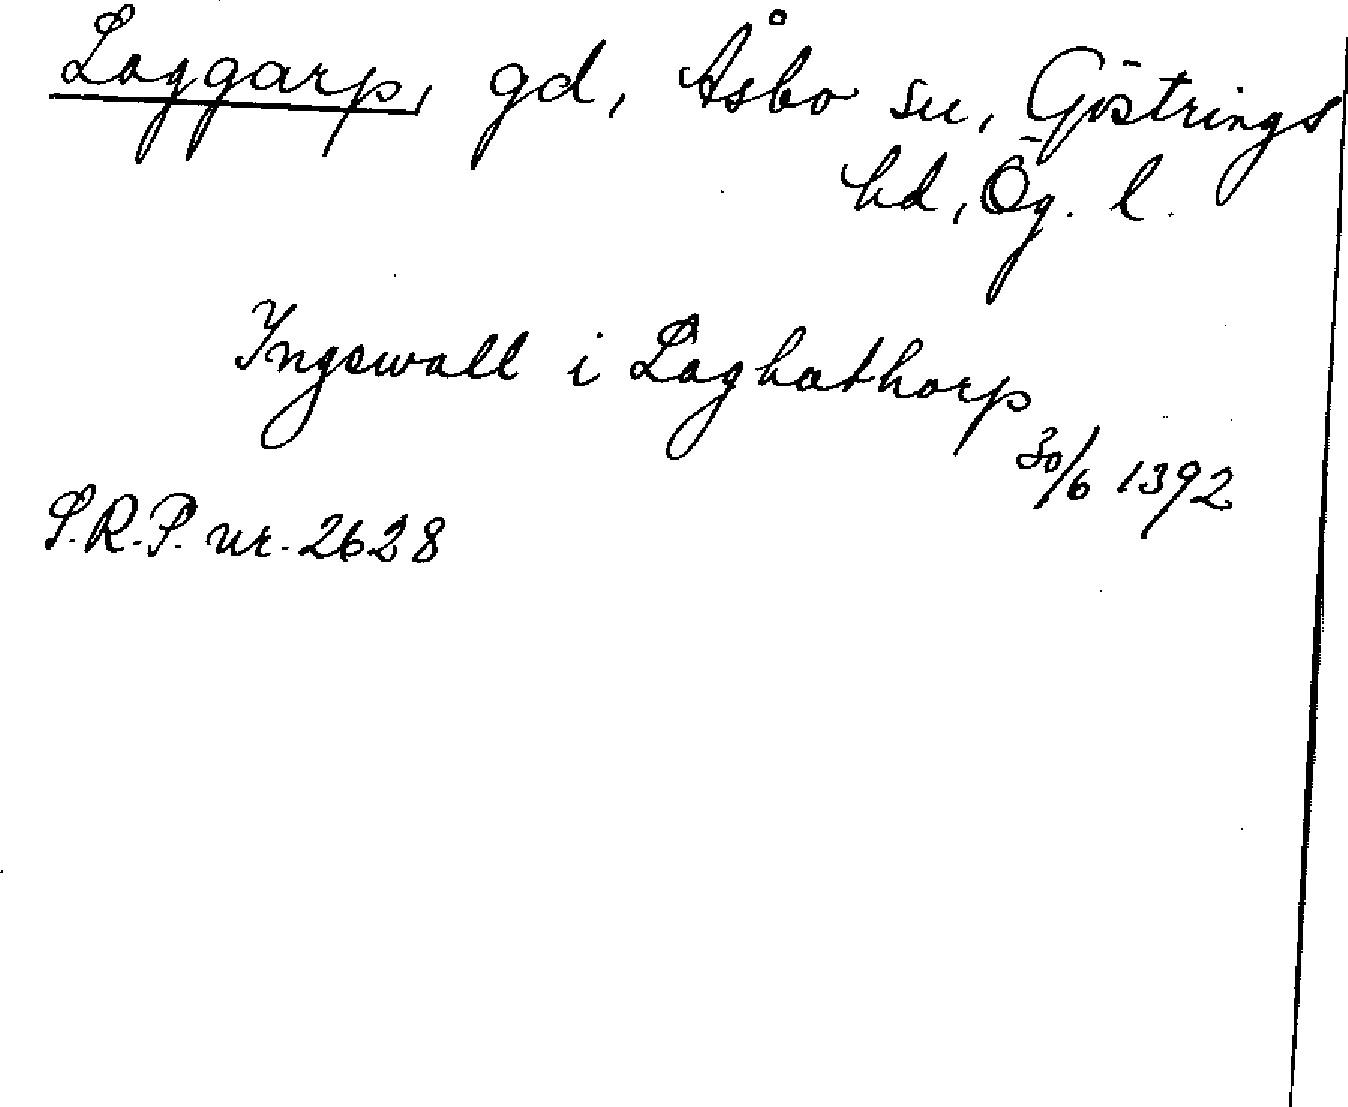 Laggarp, gd, Åsbo sn, Göstrings
hd, Ög. l.
Ingewall i Laghathorp
30/6 1392
S.R.P. nr. 2628